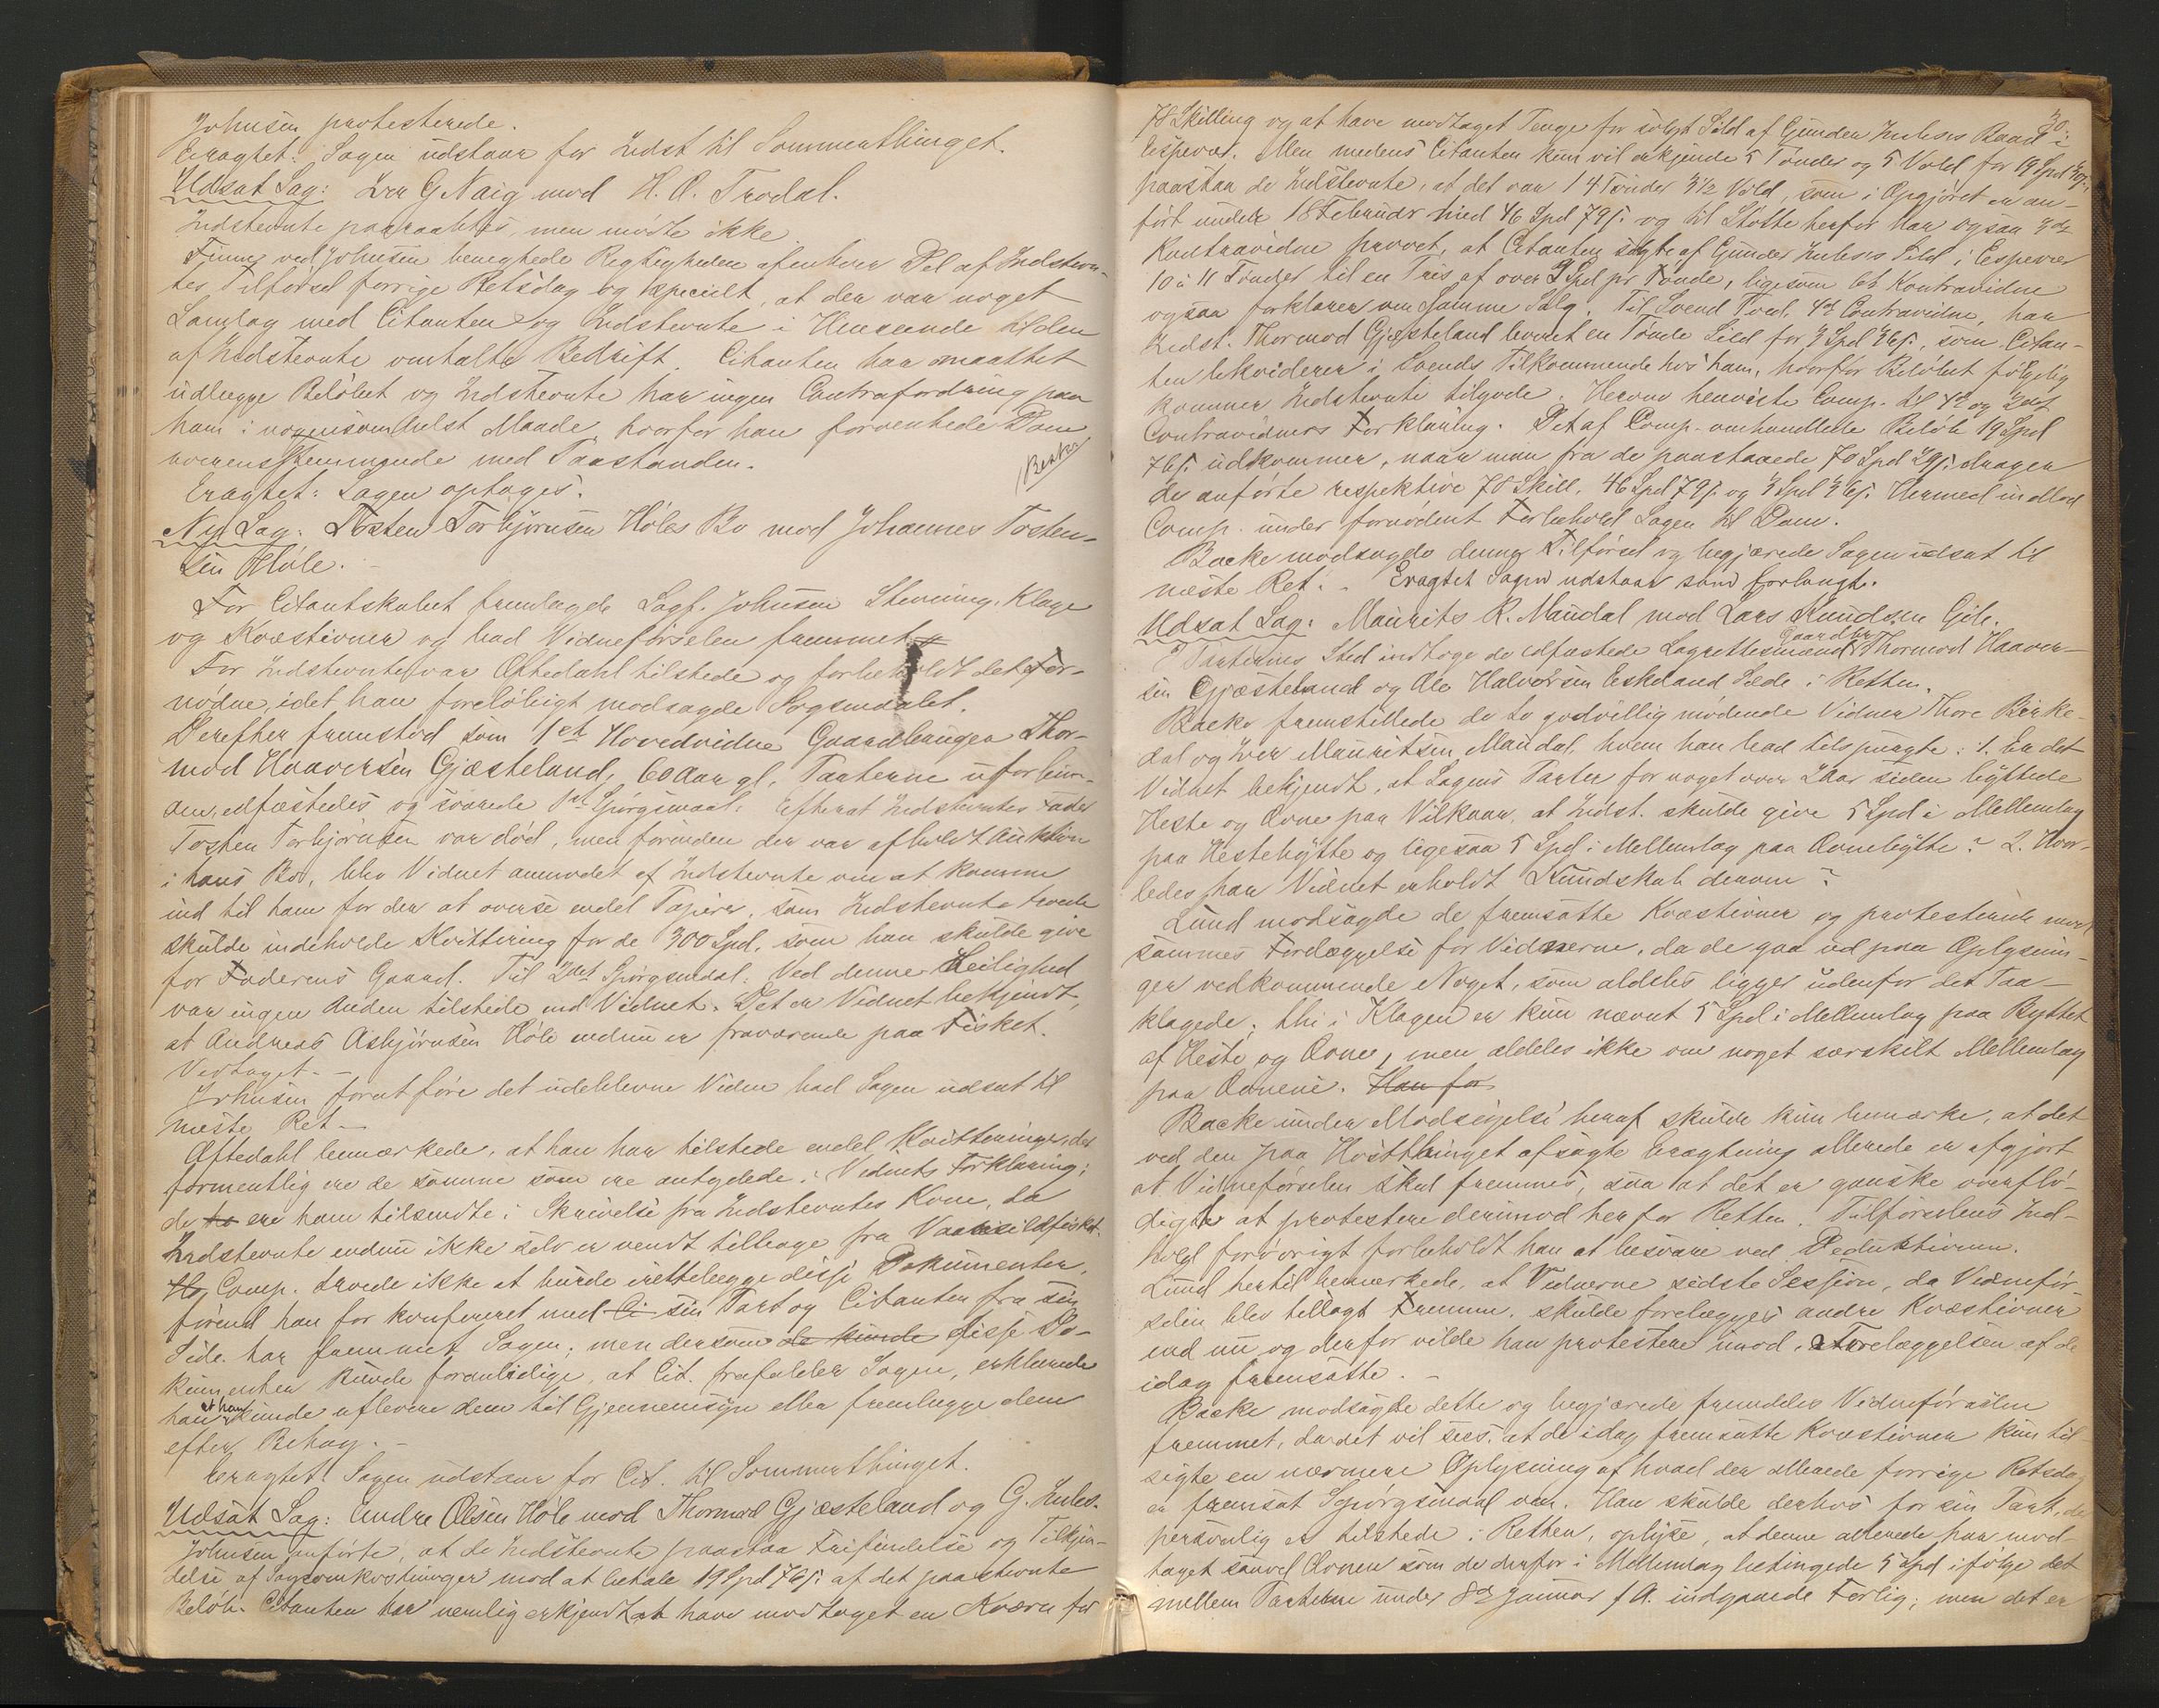 Johnsen protesterede.
Eragtet: Sagen udstaar for Indst til Sommerthinget.
Udsat Sag: Iver G Naig mod H. A. Trodal.
Indstevnte paaraabtes, men mødte ikke.
Finne ved Johnsen benegtede Rigtigheden af enhver Del af Indstevn-
tes Tilførsel forrige Retsdag og specielt, at der var noget
Samlag med Citanten og Indstevnte i Henseende til den
af Indstevnte omtalte Bedrift. Citanten har maattet
udlægge Beløbet og Indstevnte har ingen Contrafordring paa
ham i nogensomhelst Maade, hvorfor han forventede Dom
overensstemmende med Paastanden.
Eragtet: Sagen optages.
Ny Sag: Tosten Torbjørnsen Høles Bo mod Johannes Tosten-
sen Høle.
For Citantskabet fremlagde Sagf. Johnsen Stevning, Klage
og Kvæstioner og bad Vidneførselen fremmet
For Indstevnte var Oftedahl tilstede og forbeholdt det For-
nødne, idet han foreløbigt modsagde Søgsmaalet.
Derefter fremstod som 1ste Hovedvidne Gaardbruger Thor-
mod Haaversen Gjæsteland, 60 Aar gl. Parterne uforbun-
den, edfæstedes og svarede 1ste Spørgsmaal: Efterat Indstevntes Fader
Tosten Torbjørnsen var død, men forinden der var afholdt Auktion
i hans Bo, blev Vidnet anmodet af Indstevnte om at komme
ind til ham for der at overse endel Papirer, som Indstevnte troede
skulde indeholde Kvittering for de 300 Spd, som han skulde give
for Faderens Gaard. Til 2det Spørgsmaal: Ved denne Leilighed
var ingen Anden tilstede end Vidnet. Det er Vidnet bekjendt,
at Andreas Asbjørnsen Høle endnu er fraværende paa Fisket.
Vedtaget.
Johnsen for at føre det udeblevne Vidne bad Sagen udsat til
næste Ret.
Oftedahl bemærkede, at han har tilstede endel Kvitteringer, der
formentlig ere de samme som ere antydede i Vidnets Forklaring;
de ere ham tilsendte i Skrivelse fra Indstevntes Kone, da
Indstevnte endnu ikke selv er vendt tilbage fra Vaarsildfisket.
Comp. troede ikke at burde irettelægge disse Dokumenter,
førend han for konfereret med sin Part og Citanten fra sin
Side har fremmet Sagen; men dersom disse Do-
kumenter kunde foranledige, at Cit. frafalder Sagen, erklærede
han at han kunde aflevere dem til Gjennemsyn eller fremlægge dem
efter Behag.
Eragtet: Sagen udstaar for Cit. til Sommerthinget.
Udsat Sag: Endre Olsen Høle mod Thormod Gjæsteland og G. Imles.
Johnsen anførte, at de Indstevnte paastaa Frifindelse og Tilkjen-
delse af Sagsomkostninger mod at betale 19 Spd 76 s. af det paastevnte
Beløb. Citanten har nemlig erkjendt at have modtaget en Kværn for
30.
78 Skilling og at have modtaget Penge for solgt Sild af Gunder Imleses Baad i
Espevær. Men medens Citanten kun vil erkjende 5 Tønder og 5 Vold for 19 Spd
paastaa de Indstevnte, at det var 14 Tønder 3 1/2 Vold, som i Opgjøret er an-
ført under 18 Februar med 46 Spd 79 s. og til Støtte herfor har ogsaa 3die
Kontravidne provet, at Citanten solgte af Gunder Imleses Sild i Espevær
10 à 11 Tønder til en Pris af over 3 Spd pr Tønde, ligesom 6te Kontravidne
ogsaa forklarer om Samme Salg. Til Svend Tved, 4de Contravidne, har
Indst. Thormod Gjæsteland leveret en Tønde Sild for 3 Spd 36 s., som Citan-
ten lekviderer i Svends Tilkommende hos ham, hvorfor Beløbet følgelig
kommer Indstevnte tilgode. Herom henviste Comp. til 4de og 2det
Contravidners Forklaring. Det af Comp. omhandlede Beløb 19 Spd
76 s. udkommer, naar man fra de paastaaede 70 Spd 29 s. drager
de anførte respektive 78 Skill, 46 Spd 79 s. og 3 Spd 36 s. Hermed indlod
Comp. under fornødent Forbehold Sagen til Dom.
Backe modsagde denne Tilførsel og begjærede Sagen udsat til
næste Ret. Eragtet Sagen udstaar som forlangt.
Udsat Sag: Maurits R. Maudal mod Lars Knudsen Gile.
I Parternes Sted indtoge de edfæstede Lagrettesmænd Gaardbr Thormod Haaver-
sen Gjæsteland og Ole Halvorsen Eskeland Sæde i Retten.
Backe fremstillede de to godvillig mødende Vidner Thore Birke-
dal og Iver Mauritsen Maudal, hvem han bad tilspurgte: 1. Er det
Vidnet bekjendt, at Sagens Parter for noget over 2 Aar siden byttede
Heste og Ovne paa Vilkaar, at Indst. skulde give 5 Spd i Mellemlag
paa Hestebytte og ligesaa 5 Spd i Mellemlag paa Ovnebytte? 2. Hvor-
ledes har Vidnet erholdt Kundskab derom?
Lund modsagde de fremsatte Kvæstioner og protesterede mod
sammes Forelæggelse for Vidnerne, da de gaa ud paa Oplysnin-
ger vedkommende Noget, som aldeles ligger udenfor det Paa-
klagede; thi i Klagen er kun nævnt 5 Spd i Mellemlag paa Byttet
af Heste og Ovne, men aldeles ikke om noget særskilt Mellemlag
paa Ovnene. Han for
Backe under Modsigelse heraf skulde kun bemærke, at det
ved den paa Høstthinget afsagte Eragtning allerede er afgjort
at Vidneførselen skal fremmes, saa at det er ganske overflø-
digt at protestere derimod her for Retten. Tilførselens Ind-
hold forøvrigt forbeholdt han at besvare ved Deduktionen.
Lund hertil bemærkede, at Vidnerne sidste Session, da Vidnefør-
selen blev tillagt Fremme, skulde forelægges andre Kvæstioner
end nu og derfor vilde han protestere imod Forelæggelsen af de
idag fremsatte.
Backe modsagde dette og begjærede fremdeles Vidneførselen
fremmet, da det vil sees, at de idag fremsatte Kvæstioner kun til-
sigte en nærmere Oplysning af hvad der allerede forrige Retsdag
er fremsat Spørgsmaal om. Han skulde derhos for sin Part, der
personlig er tilstede i Retten, oplyse, at denne allerede har mod-
taget saavel Ovnen som de derfor i Mellemlag betingede 5 Spd ifølge det
mellem Parterne under 8de Januar f. A. indgaaede Forlig; men det er